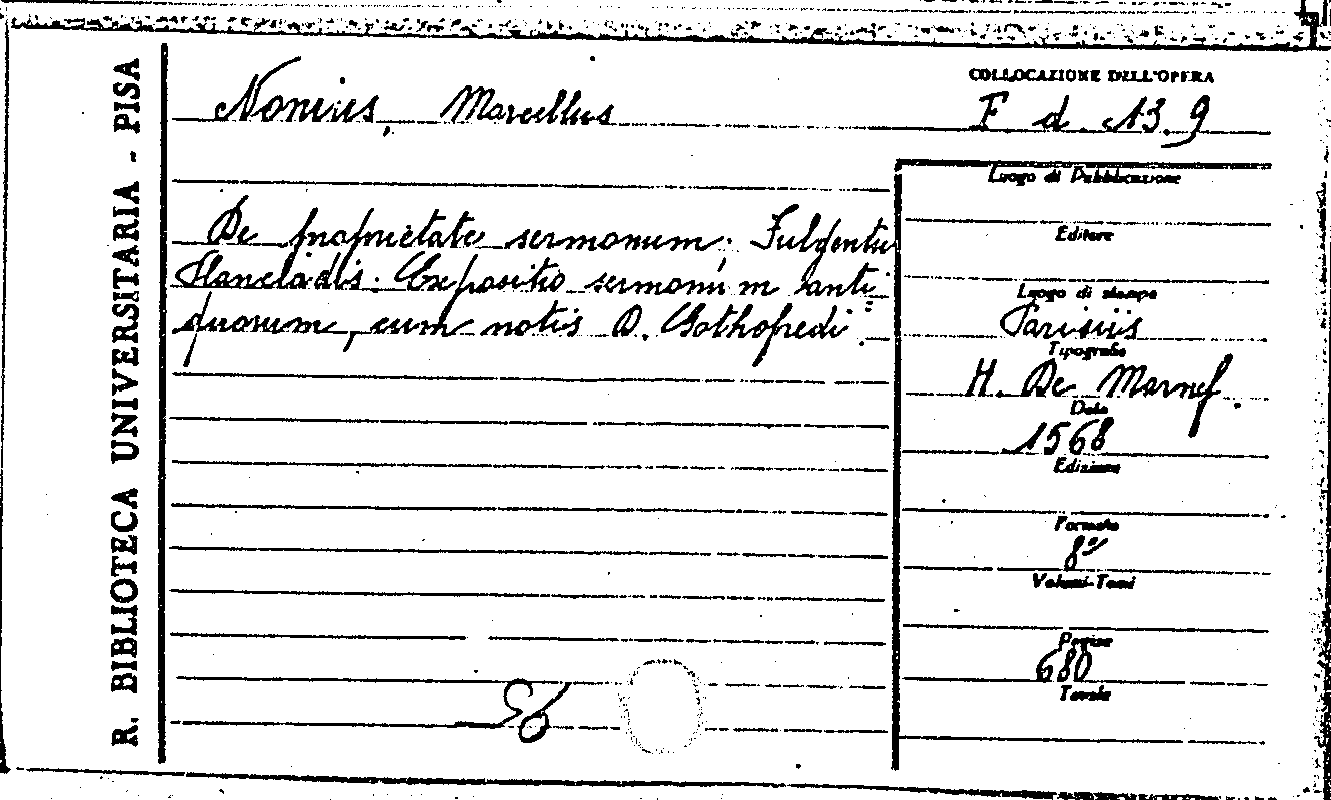 R. BIBLIOTECA UNIVERSITARIA - PISA
Nonius, Marcellus
COLLOCAZIONE DELL'OPERA
F d. 13. 9
De proprietate sermonum; Fulgentii
Planciadis. Expositio sermonum anti=
quorum, cum notis D. Gothofredi.
Luogo di Pubblicazione
Editore
Luogo di stampa
Parisiis
Tipografo
H. De Marnef.
Data
1568
Edizione
Formato
8º
Volumi-Tomi
Pagine
680
Tavole